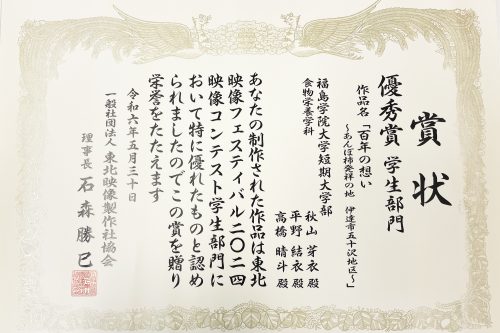 賞状
優秀賞 学生部門
作品名「百年の想い
〜あんぽ柿発祥の地 伊達市五十沢地区〜」
福島学院大学短期大学部
食物栄養学科
秋山 芽衣 殿
平野 結衣 殿
高橋 晴斗 殿
あなたの制作された作品は東北
映像フェスティバル二〇二四
映像コンテスト学生部門に
おいて特に優れたものと認め
られましたのでこの賞を贈り
栄誉をたたえます
令和六年五月三十日
一般社団法人 東北映像製作社協会
理事長 石森勝巳